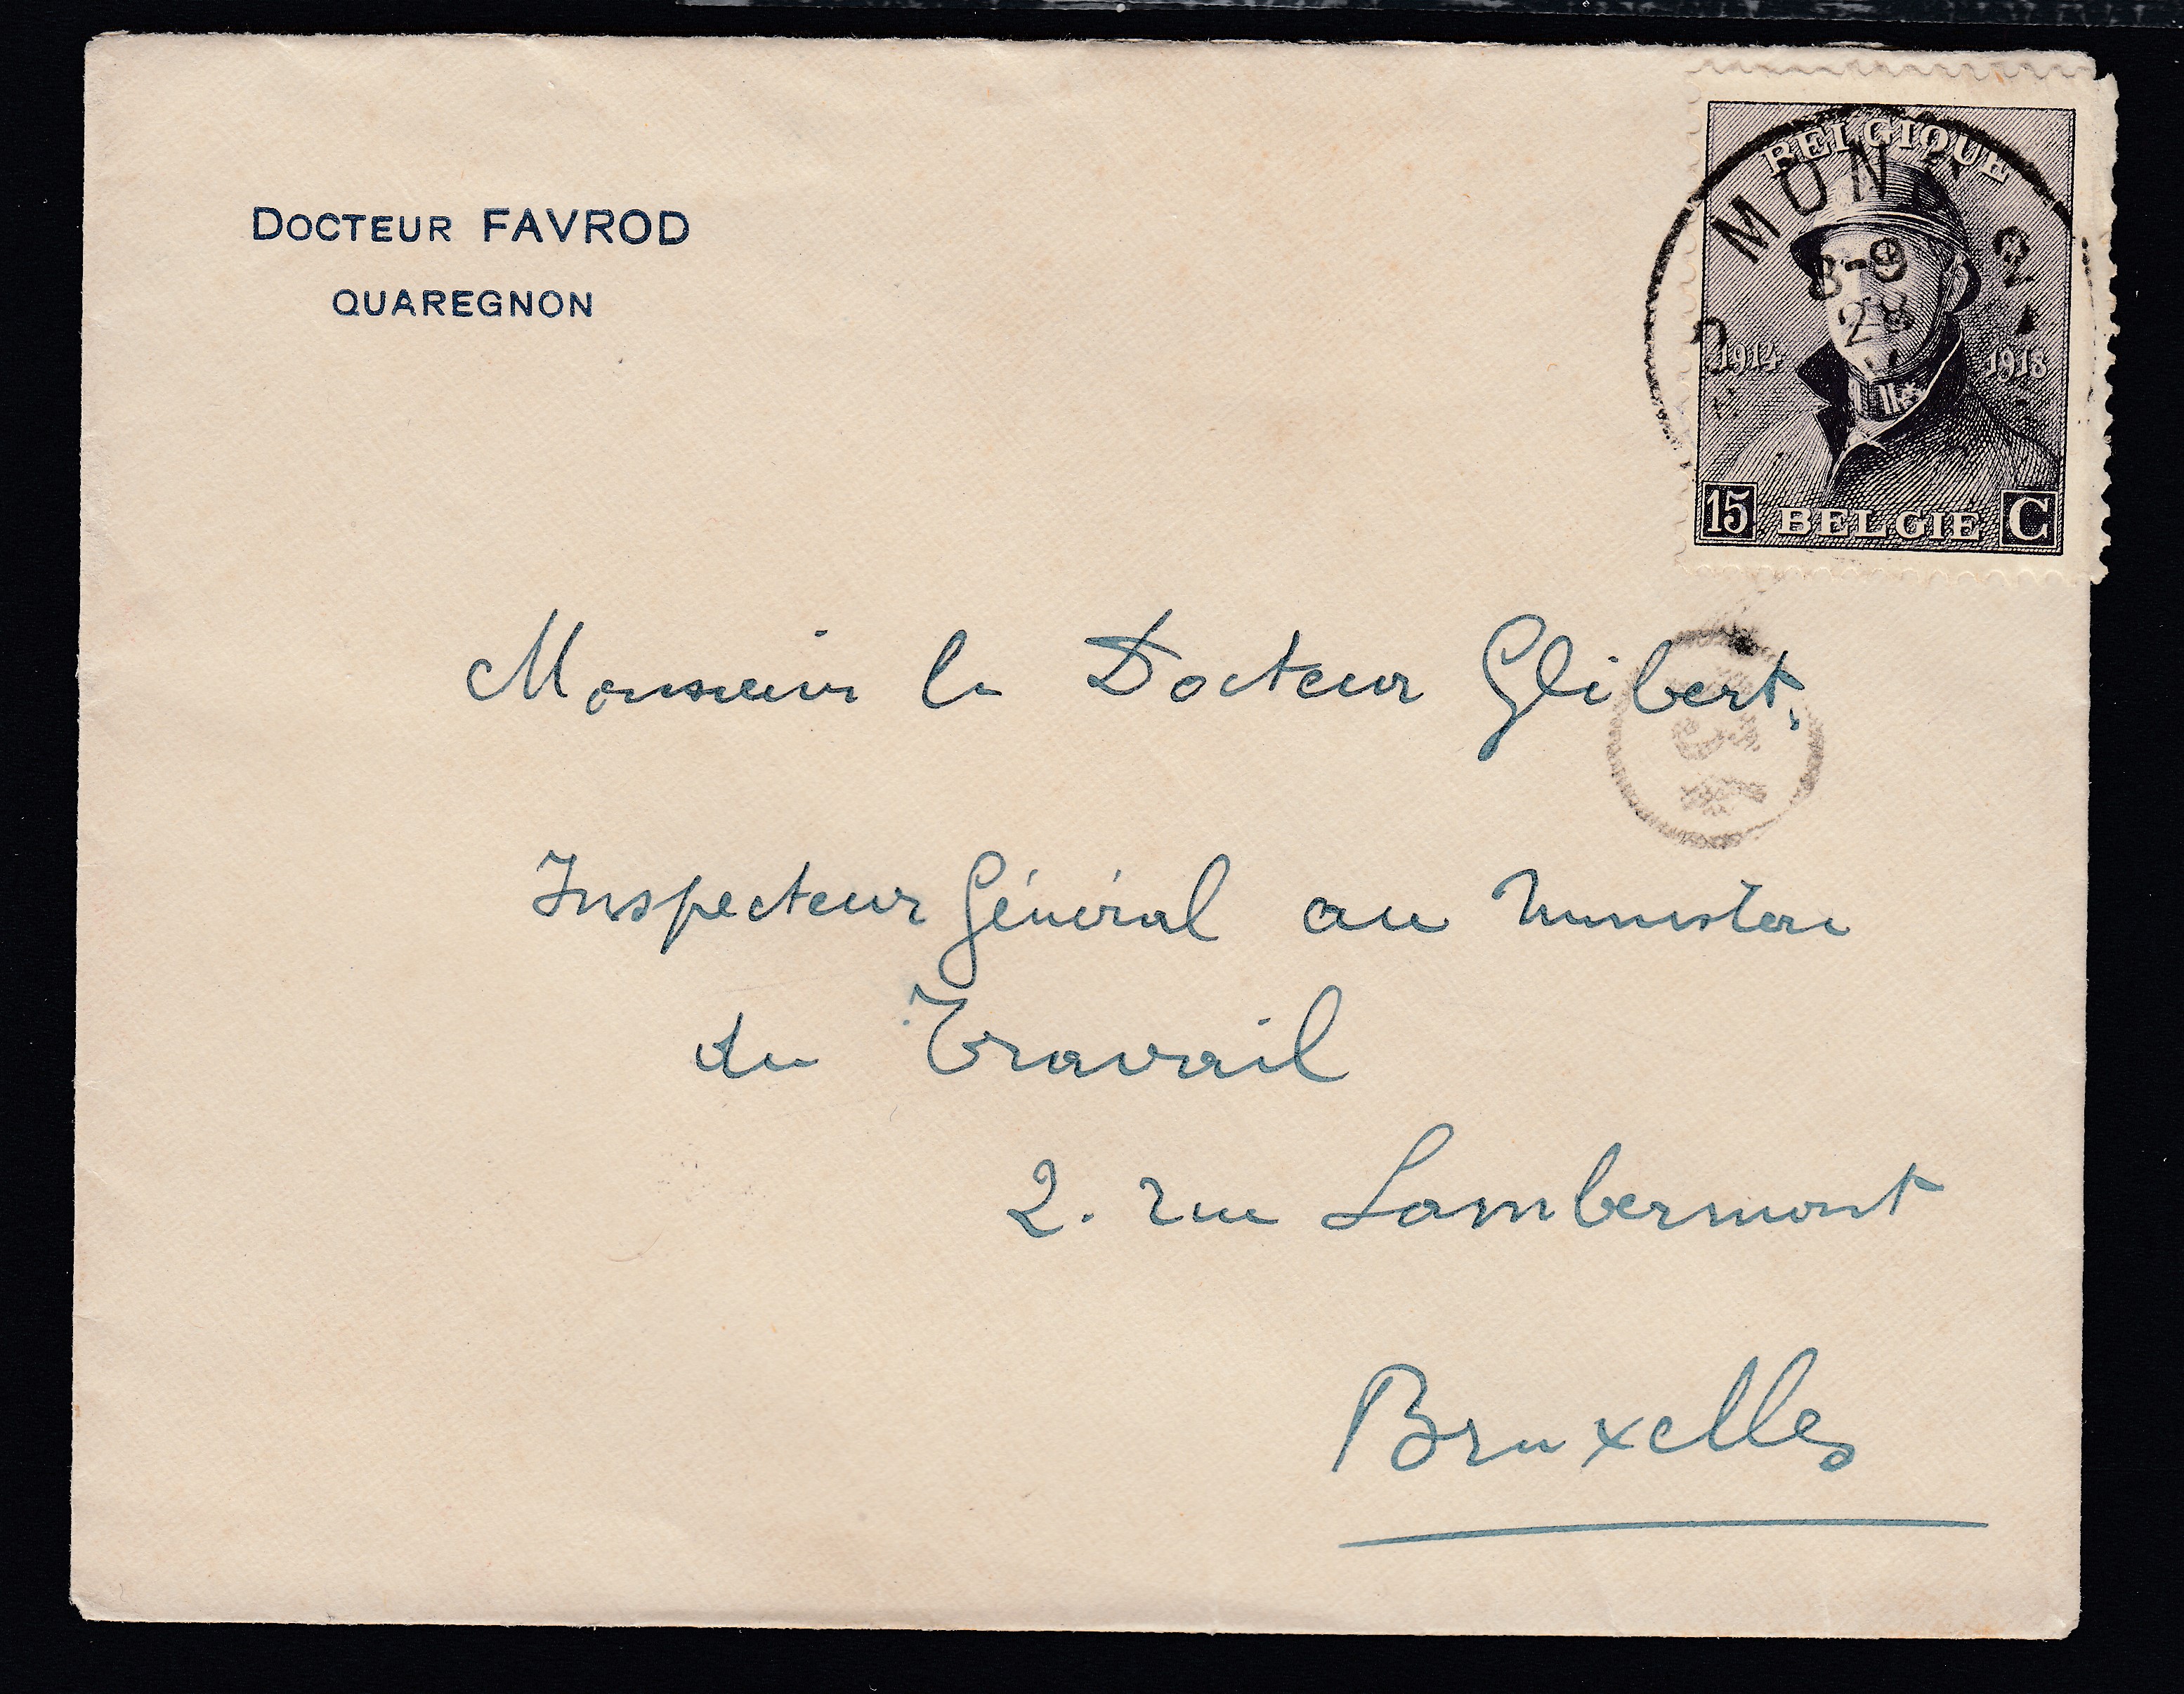 DOCTEUR FAVROD
QUAREGNON
BELGIQUE
MONS
8-9
28
1914
1918
15 BELGIE C
Monsieur le Docteur Glibert,
Inspecteur Général au Ministère
du Travail
2. rue Lambermont
Bruxelles